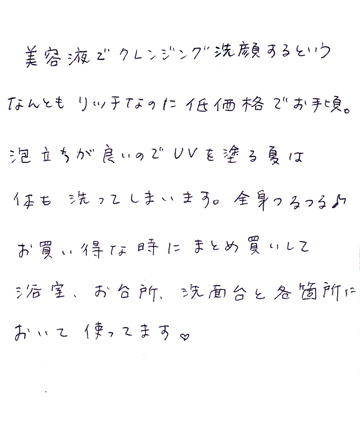 美容液でクレンジング洗顔するという
なんともリッチなのに低価格でお手頃。
泡立ちが良いのでUVを塗る夏は
体も洗ってしまいます。全身つるつる♪
お買い得な時にまとめ買いして
浴室、お台所、洗面台と各箇所に
おいて使ってます♡